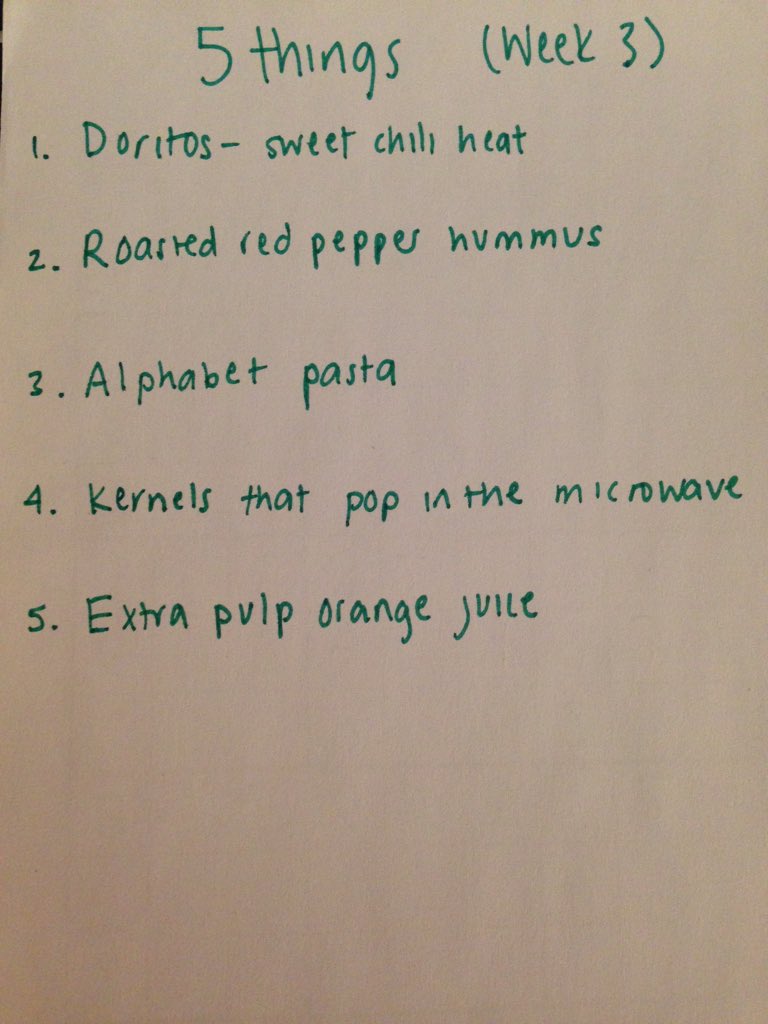 5 things (Week 3)
1. Doritos - sweet chili heat
2. Roasted red pepper hummus
3. Alphabet pasta
4. Kernels that pop in the microwave
5. Extra pulp orange juice